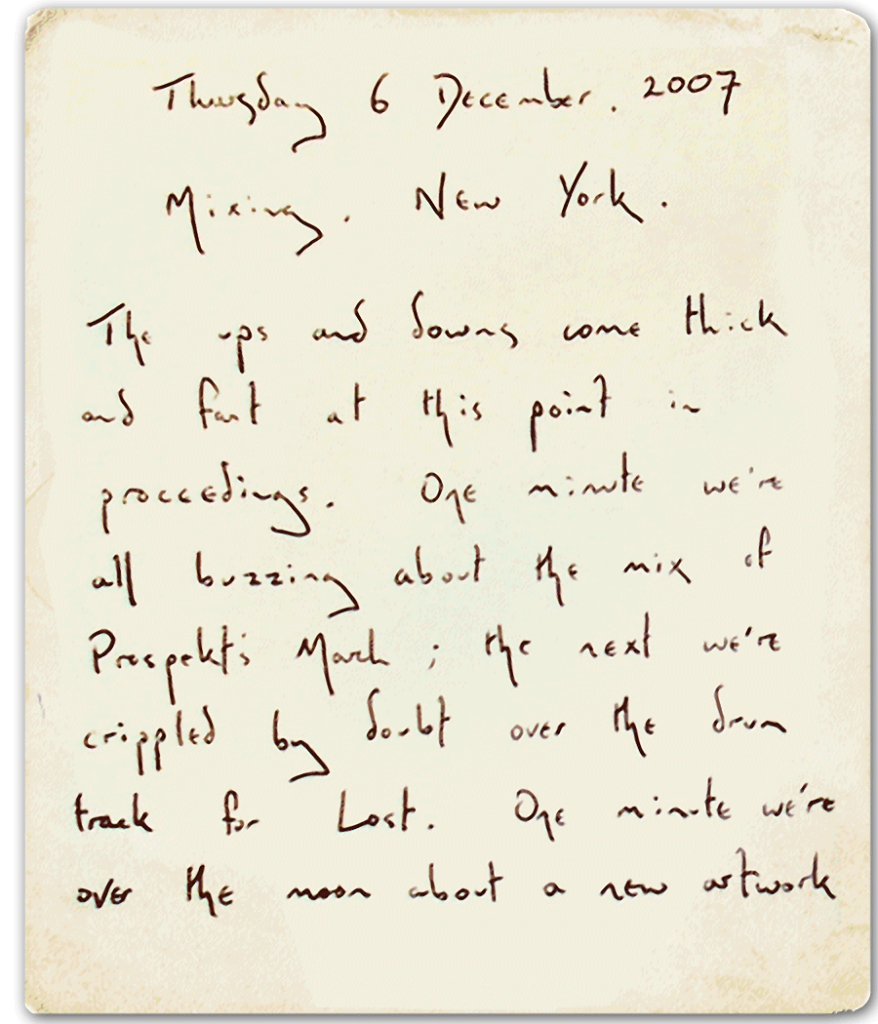 Thursday 6 December. 2007
Mixing. New York.
The ups and downs come thick
and fast at this point in
proceedings. One minute we're
all buzzing about the mix of
Prospekt's March ; the next we're
crippled by doubt over the drum
track for Lost. One minute we're
over the moon about a new artwork